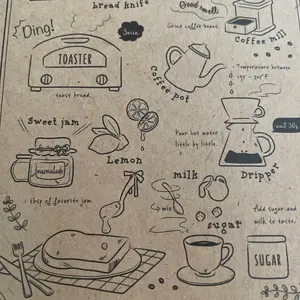 bread knife
Good smell
Grind coffee beans.
Coffee mill
Ding!
TOASTER
toast bread.
Coffee pot
Temperature between
Sweet jam
marmalade
1 tbsp of favorite jam.
Lemon
Pour hot water
little by little.
Dripper
milk
mix
sugar
Add sugar and
milk to taste.
SUGAR